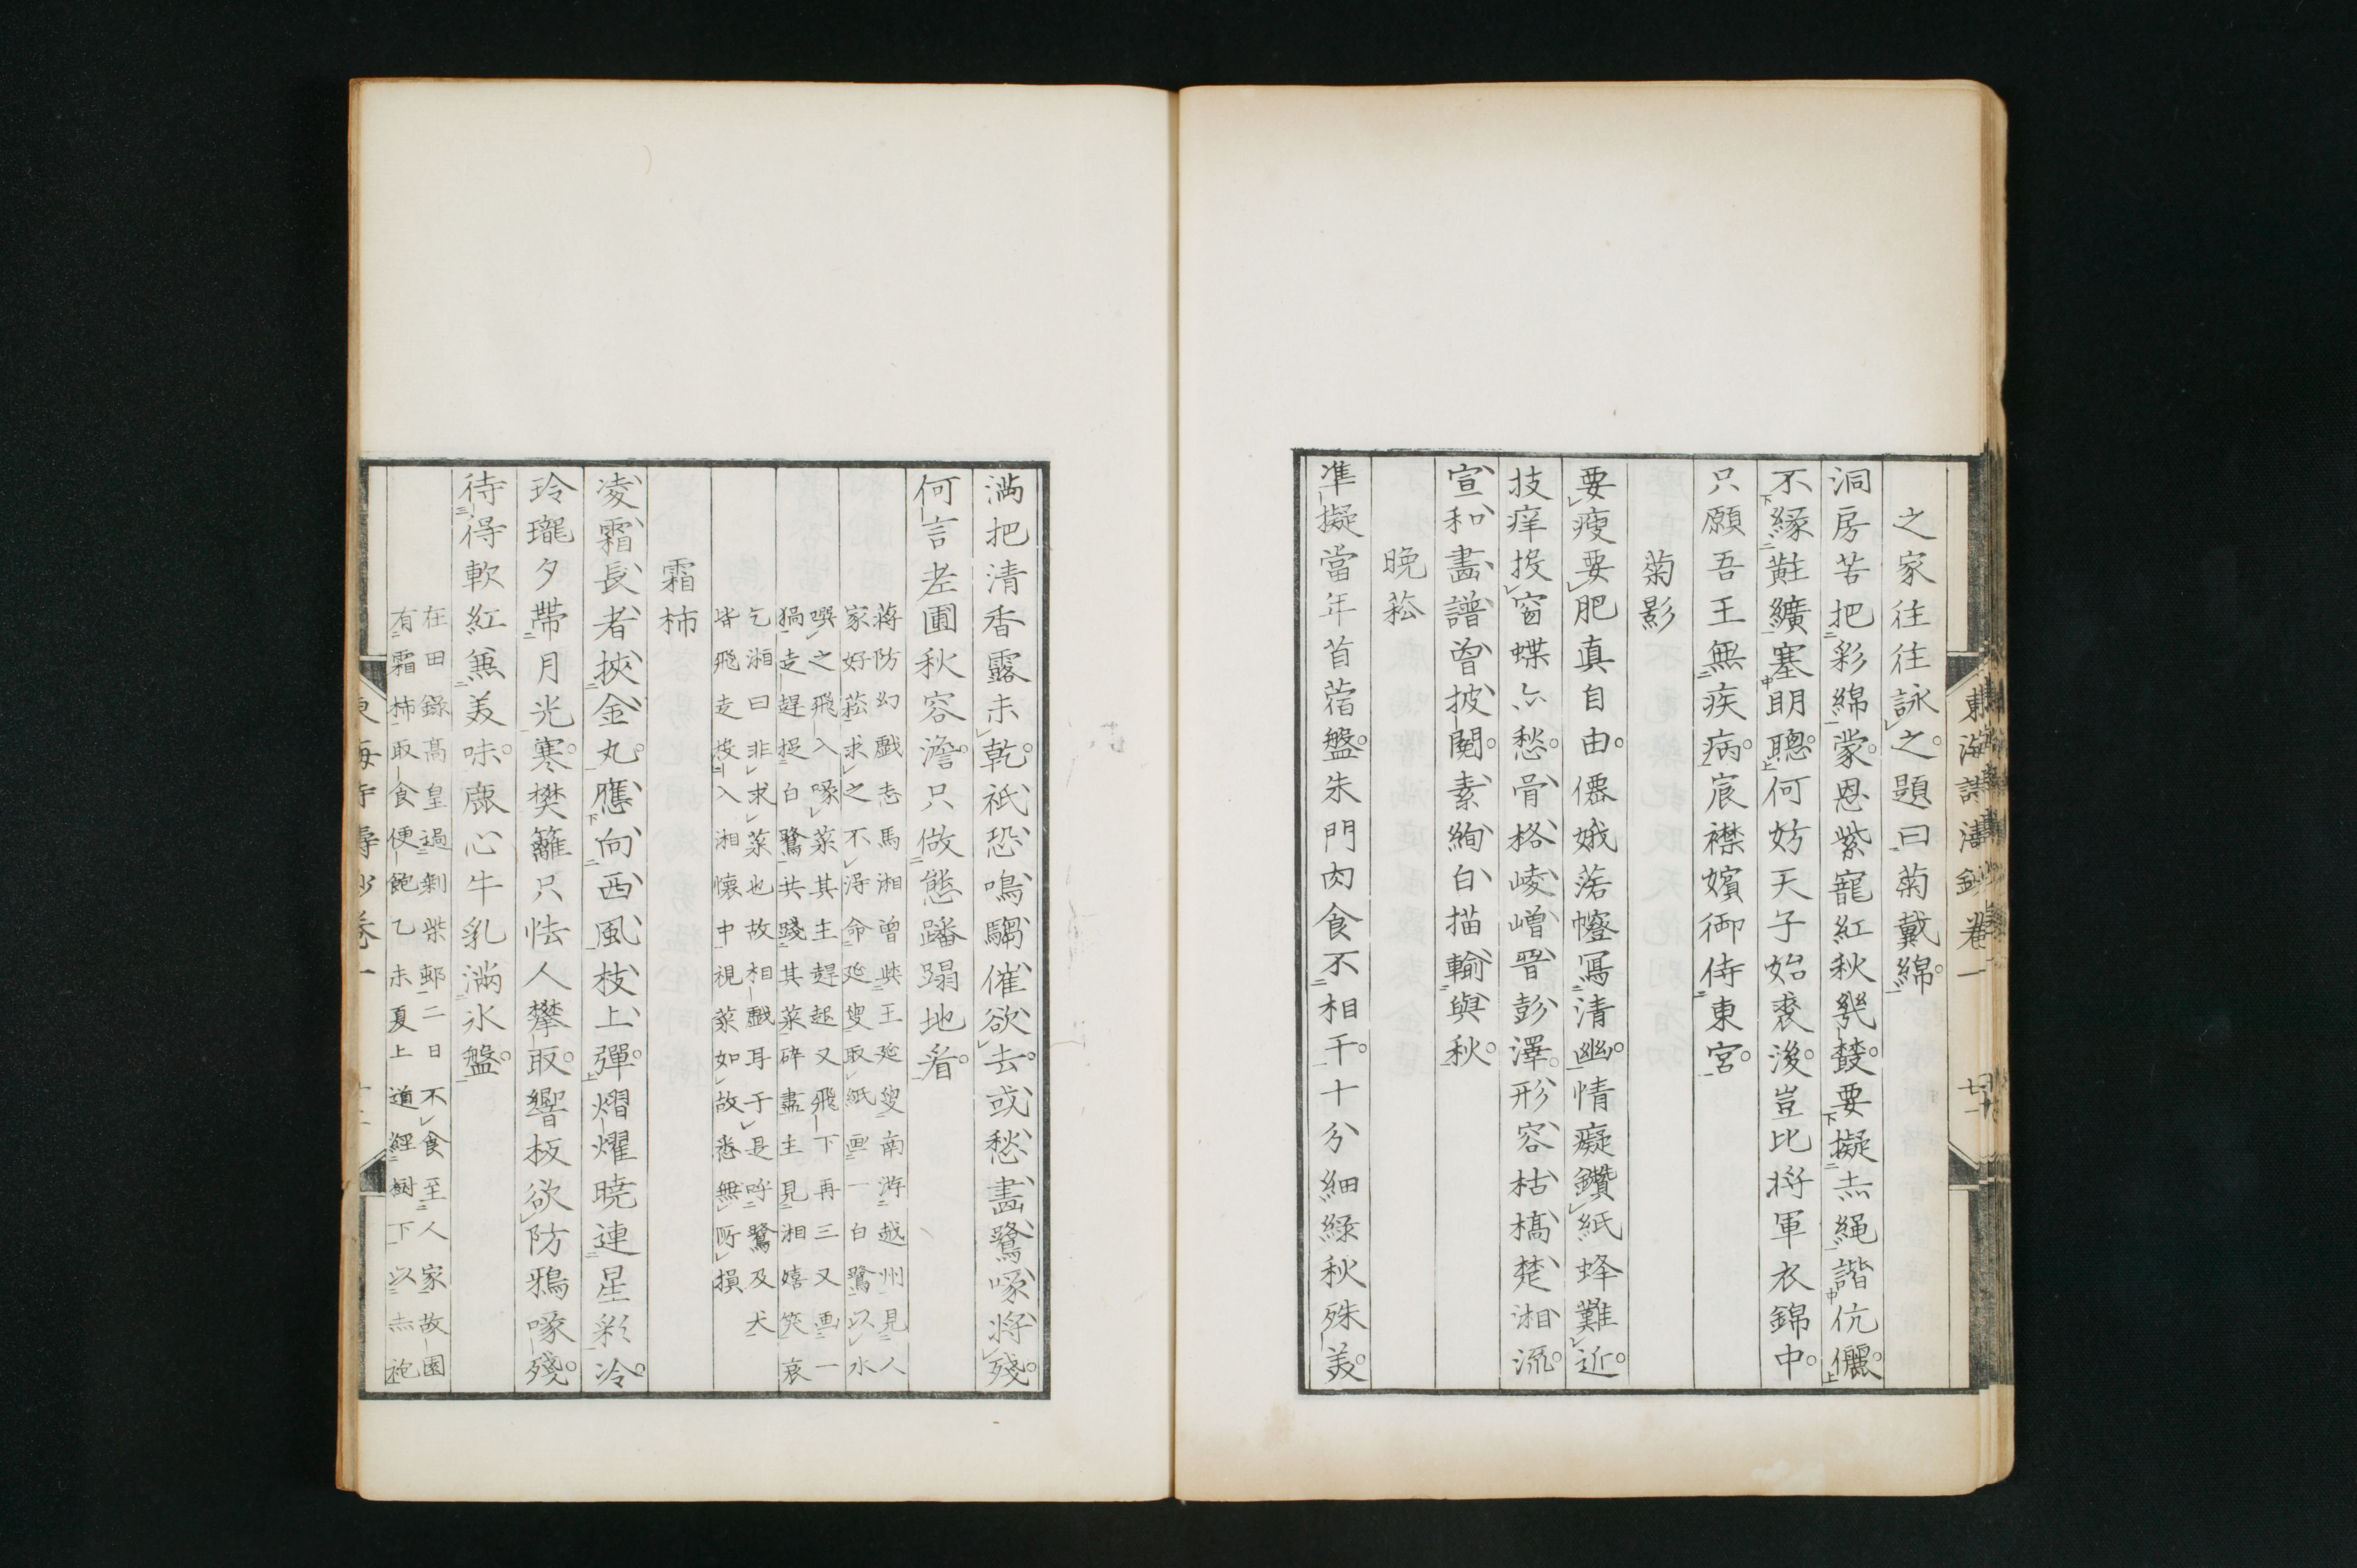 之家往往詠之題曰菊戴綿
洞房苦把彩綿蒙恩紫寵紅秋幾叢要擬赤繩諧伉儷
不緣黈纊塞明聰何妨天子始裘後豈比将軍衣錦中
只願吾王無疾病宸襟嬪御侍東宮
菊影
要瘦要肥真自由僊娥落幛寫清幽情癡鑽紙蜂難近
技痒投窗蝶亦愁骨格崚嶒晉彭澤形容枯槁楚湘流
宣和畵譜曾披閱素絢白描輸與秋
晩菘
準擬當年首蓿盤朱門肉食不相干十分細緑秋殊美
満把清香露未乾祇恐鳴騶催欲去或愁畵鷺啄将殘
何言老圃秋容澹只做態蹯蹋地看
蒋防幻戲志馬湘曾與王延叟南游越州見人
家好菘求之不得命延叟取紙画一白鷺以水
噀之飛入啄菜其主趕起又飛下再三又画一
猧走趕捉白鷺共踐其菜碎盡主見湘嬉笑哀
乞湘曰非求菜也故相戲耳于是呼鷺及犬
皆飛走投入湘懐中視菜如故悉無所損
霜柿
凌霜長者挾金丸應向西風枝上彈熠燿暁連星彩冷
玲瓏夕帶月光寒樊籬只怯人攀取響板欲防鴉啄殘
待得軟紅兼美味鹿心牛乳満氷盤
在田錄髙皇過剰柴邨二日不食至人家故園
有霜柿取食便飽乙未夏上道經樹下以赤袍
東海詩濤鈔卷一